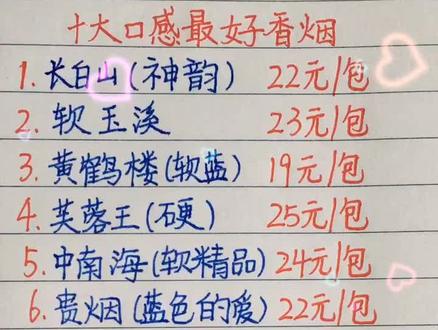 十大口感最好香烟
1. 长白山(神韵) 22元/包
2. 软玉溪 23元/包
3. 黄鹤楼(软蓝) 19元/包
4. 芙蓉王(硬) 25元/包
5. 中南海(软精品) 24元/包
6. 贵烟(蓝色的爱) 22元/包